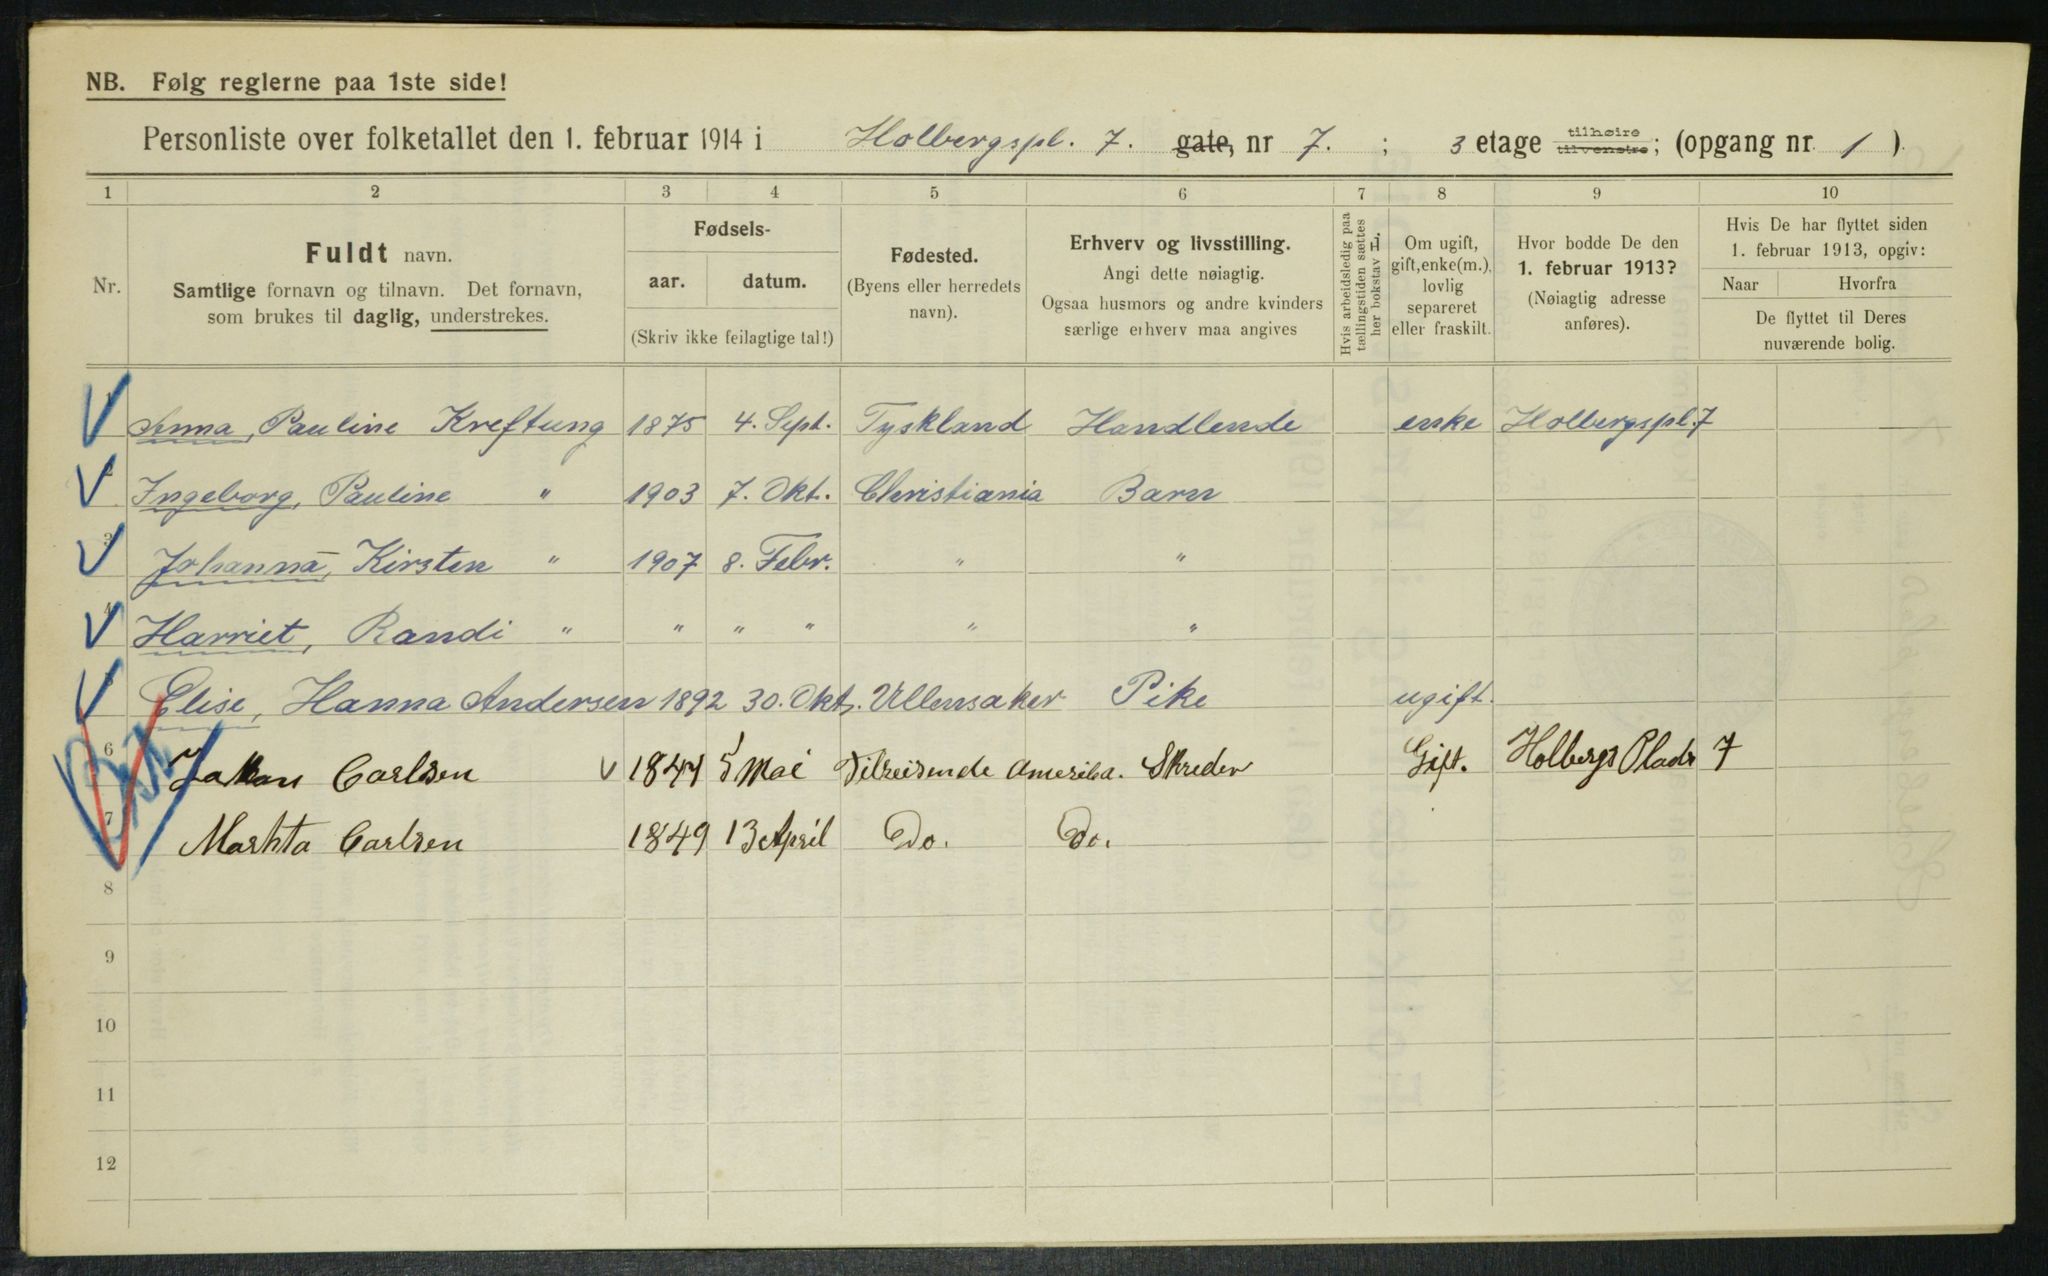 NB. Følg reglerne paa 1ste side!
Personliste over folketallet den 1. februar 1914 i Holbergspl. 7. gate, nr 7. ; 3 etage tilhøire tilvenstre; (opgang nr 1 )
1 2 3 4 5 6 7 8 9 10
Nr.
Fuldt navn.
Samtlige fornavn og tilnavn. Det fornavn,
som brukes til daglig, understrekes.
Fødsels-
aar. datum.
(Skriv ikke feilagtige tal!)
Fødested.
(Byens eller herredets
navn).
Erhverv og livsstilling.
Angi dette nøiagtig.
Ogsaa husmors og andre kvinders
særlige erhverv maa angives
Hvis arbeidsledig paa
tællingstiden sættes
her bokstav L.
Om ugift,
gift, enke(m.),
lovlig
separeret
eller fraskilt.
Hvor bodde De den
1. februar 1913?
(Nøiagtig adresse
anføres).
Hvis De har flyttet siden
1. februar 1913, opgiv:
Naar Hvorfra
De flyttet til Deres
nuværende bolig.
1 Anna, Pauline Kreftung 1875 4. Sept. Tyskland Handlende enke Holbergspl. 7
2 Ingeborg, Pauline " 1903 7. Okt. Christiania Barn
3 Johanna, Kirsten " 1907 8. Febr. " "
4 Harriet, Randi " " " " " "
5 Elise, Hanna Andersen 1892 30. Okt. Ullensaker Pike ugift.
6 Johan Carlsen 1847 5 Mai Tilreisende Amerika. Skreder Gift. Holbergs Plads 7
7 Martha Carlsen 1849 13 April Do. Do.
8
9
10
11
12